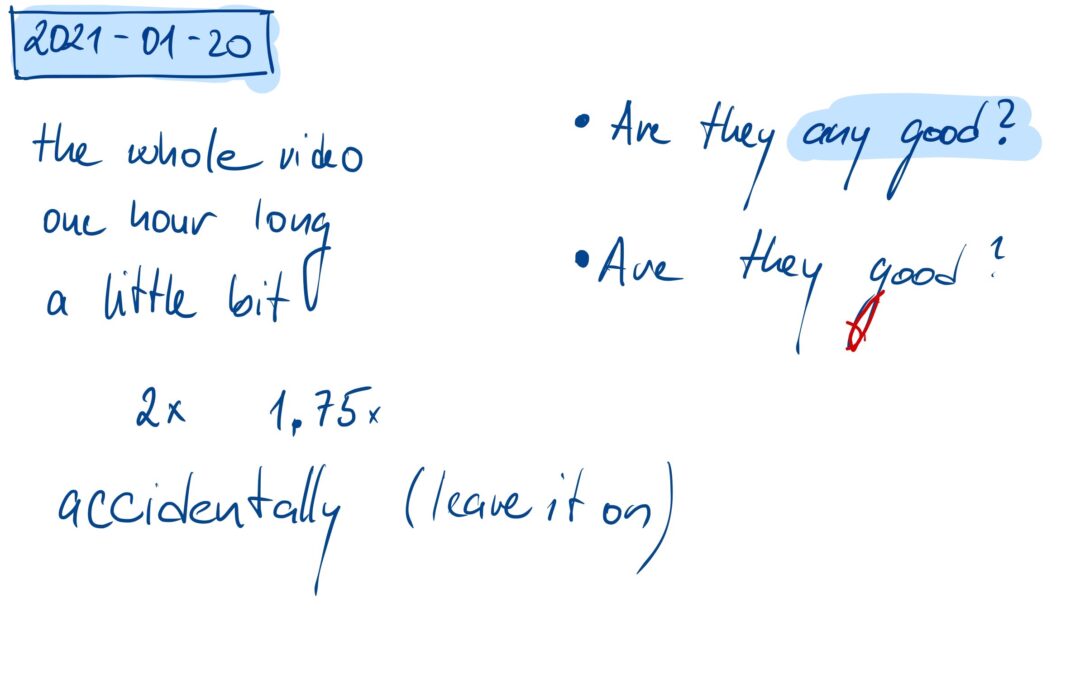 2021-01-20
the whole video
one hour long
a little bit
2x 1.75x
accidentally (leave it on)
• Are they any good?
• Are they good?